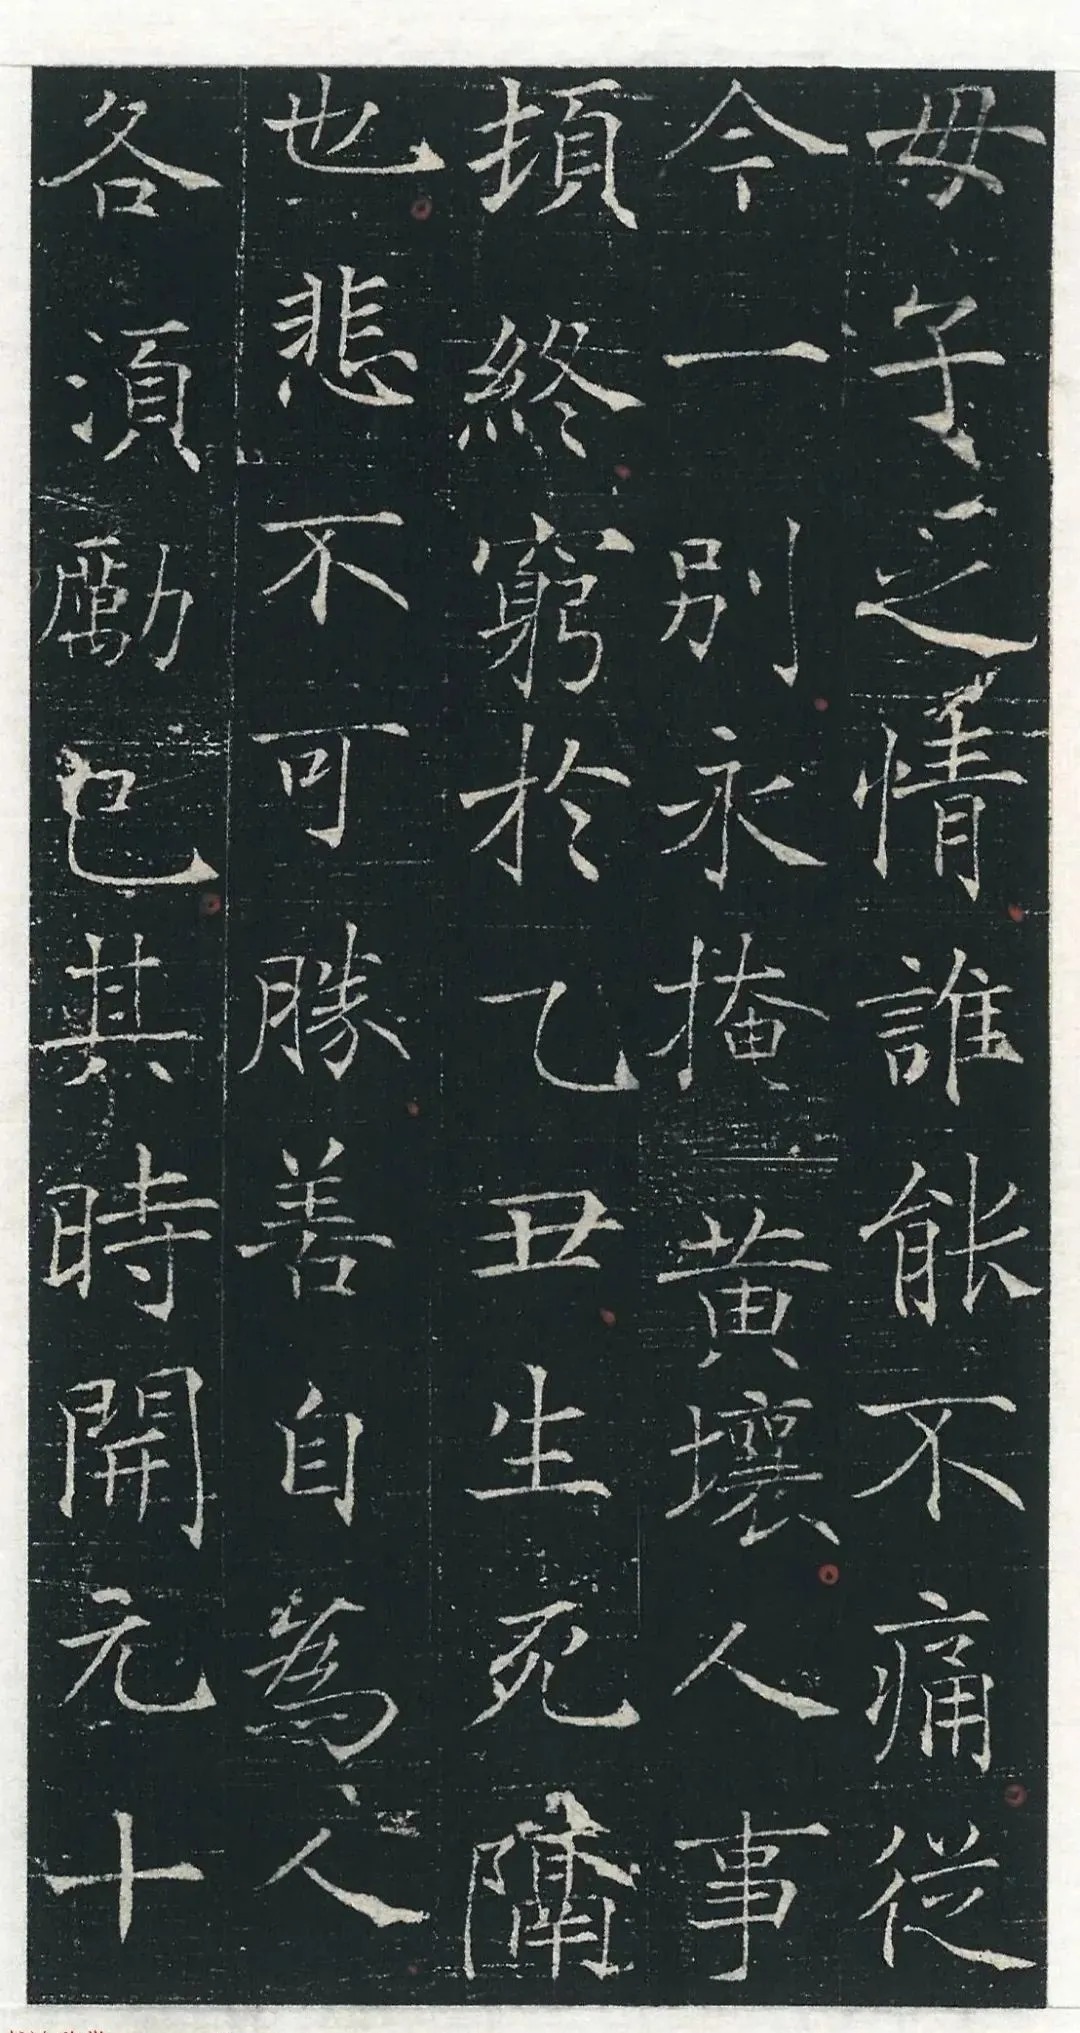 母子之情誰能不痛從
今一別永掩黄壤人事
頓終窮於乙丑生死隔
也悲不可勝善自爲人
各須勵己其時開元十